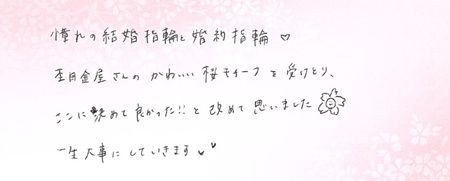 憧れの結婚指輪と婚約指輪♡
杢目金屋さんのかわいい桜モチーフを受けとり、
ここに決めて良かった!!と改めて思いました
一生大事にしていきます♡♡